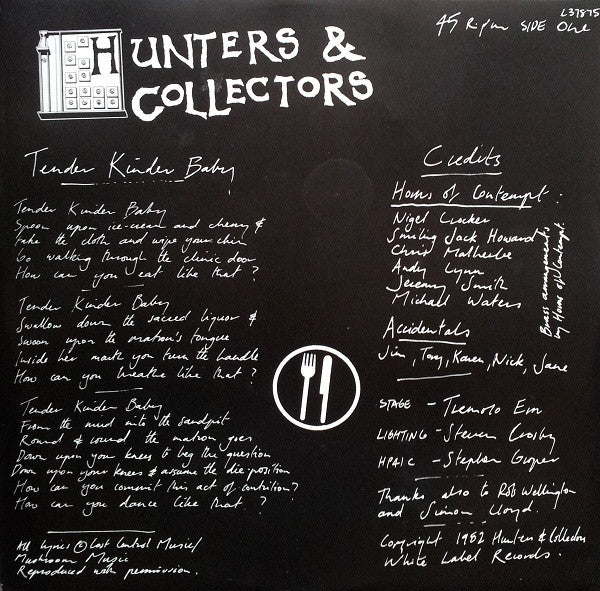 L37875
45 R.p.m SIDE One
HUNTERS &
COLLECTORS
Tender Kinder Baby
Tender Kinder Baby
Spoon upon ice-cream and cherry &
take the cloth and wipe your chin
Go walking through the clinic door
How can you eat like that?
Tender Kinder Baby
Swallow down the sacred liquor &
Swoon upon the oration's tongue
Inside her mouth you turn the handle
How can you breathe like that?
Tender Kinder Baby
From the mud into the sandpit
Round & round the matron goes
Down upon your knees to beg the question
Down upon your knees & assume the die-position
How can you commit this act of contrition?
How can you dance like that?
All lyrics © Lost Control Music/
Mushroom Music
Reproduced with permission.
Credits
Horns of Contempt.
Nigel Crocker
Smiling Jack Howard
Chris Malherbe
Andy Lynn
Jeremy Smith
Michael Waters
Brass arrangements
by Horns of Contempt.
Accidentals
Jim, Tony, Karen, Nick, Jane
STAGE - Tremolo Em
LIGHTING - Steven Crosby
HPAIC - Stephen Cooper
Thanks also to Rob Wellington
and Simon Lloyd.
Copyright 1982 Hunters & Collectors
White Label Records.